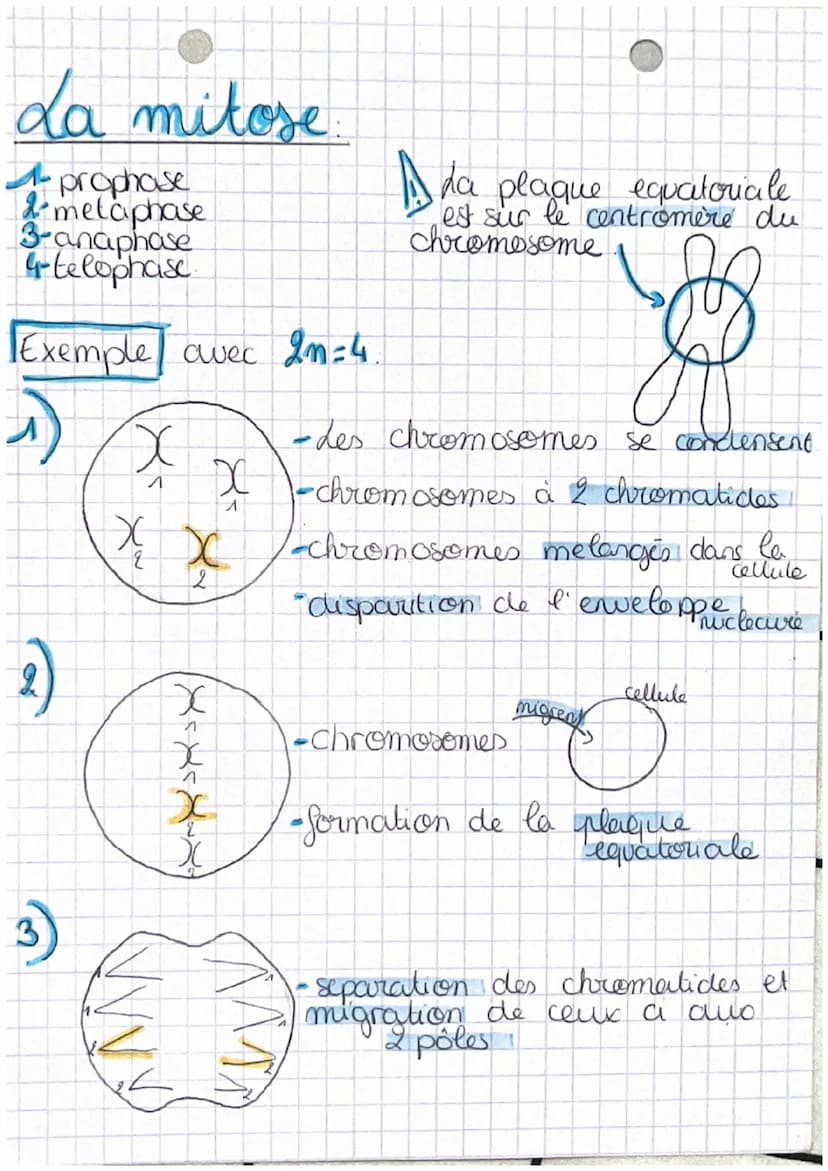 La mitose.
1- prophase
2- metaphase
3- anaphase
4- telophase.
⚠ La plaque equatoriale
est sur le centromère du
chromosome
Exemple avec 2n=4.
1)
1
1
2
2
- Les chromosomes se condensent
- chromosomes à 2 chromatides
- chromosomes melangés dans la
cellule
- disparition de l'enveloppe
nucleaire
2)
1
1
2
2
- chromosomes
migrent
cellule
- formation de la plaque
equatoriale
3)
1
1
1
1
2
2
2
2
- separation des chromatides et
migration de ceux ci aux
2 pôles